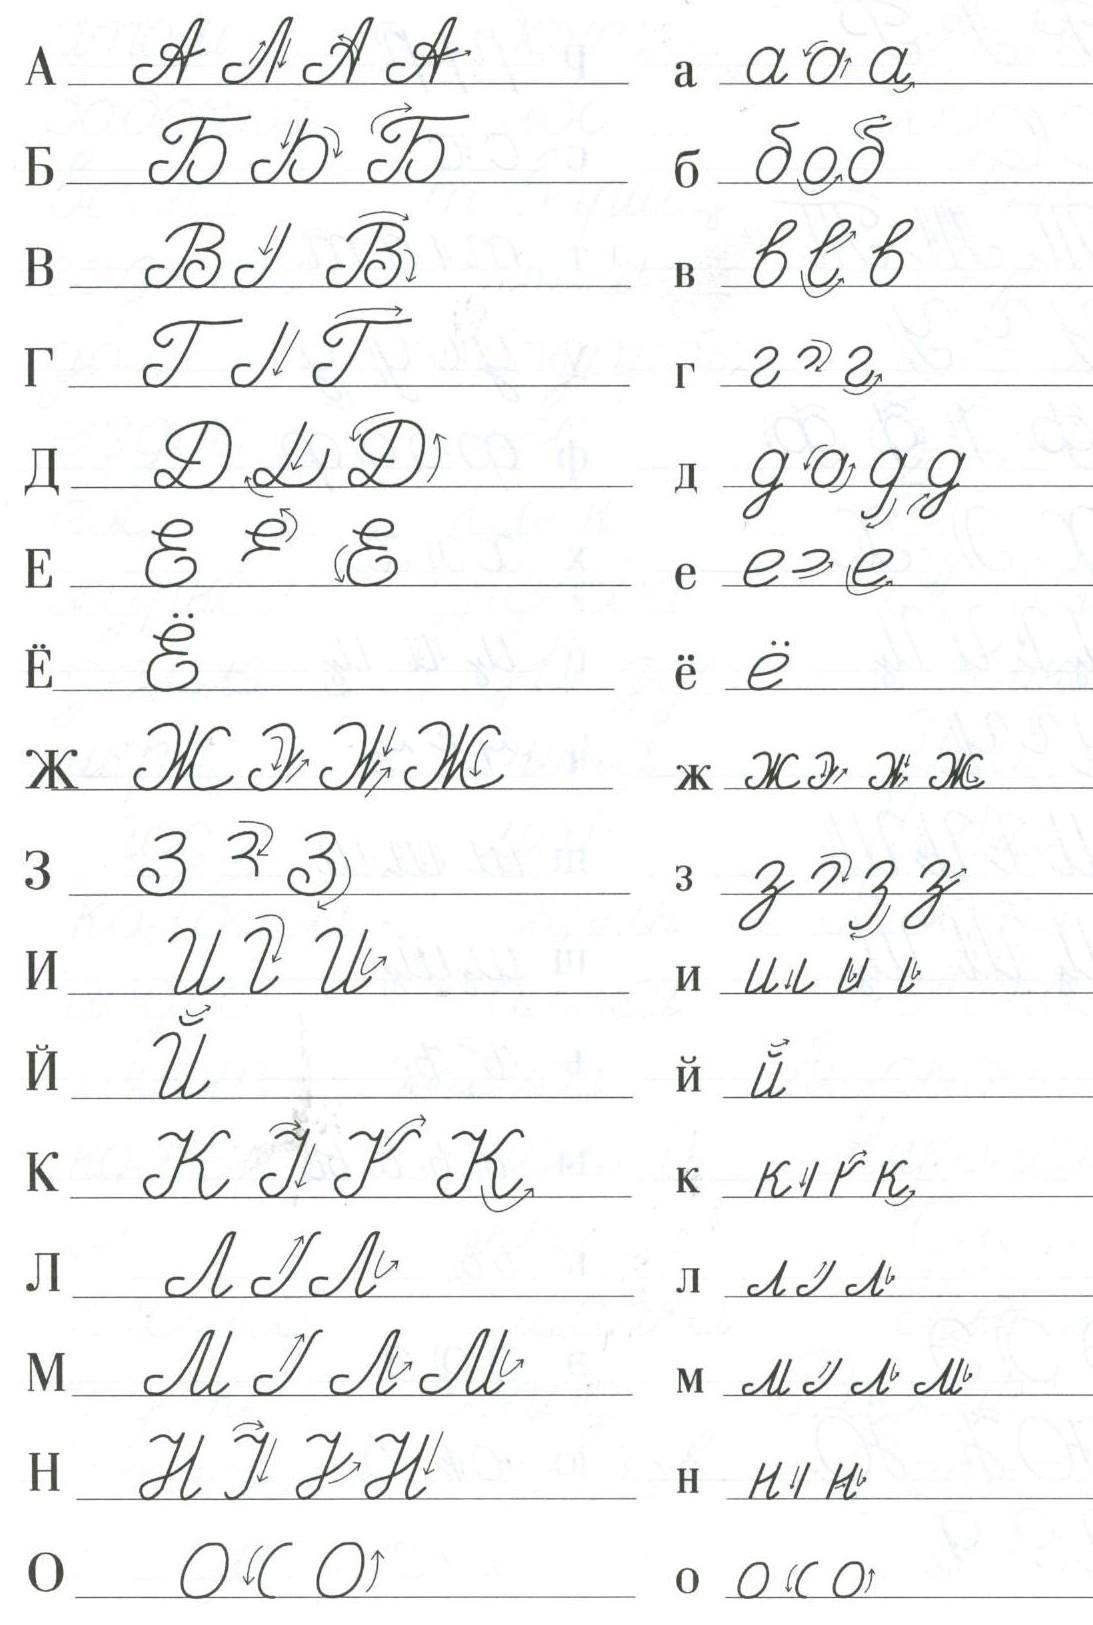 А А Л А А а а о а
Б Б Ь Б б б о б
В В В в в в
Г Г Г г г г
Д Д Д д д а д д
Е Е е Е е е е
Ё Ё ё ё
Ж Ж Ж Ж ж ж ж ж
З З З З з з з з
И И И и и и
Й Й й й
К К К К к к к
Л Л Л л л л
М М Л М м м л м
Н Н Н н н н
О О С О о о с о